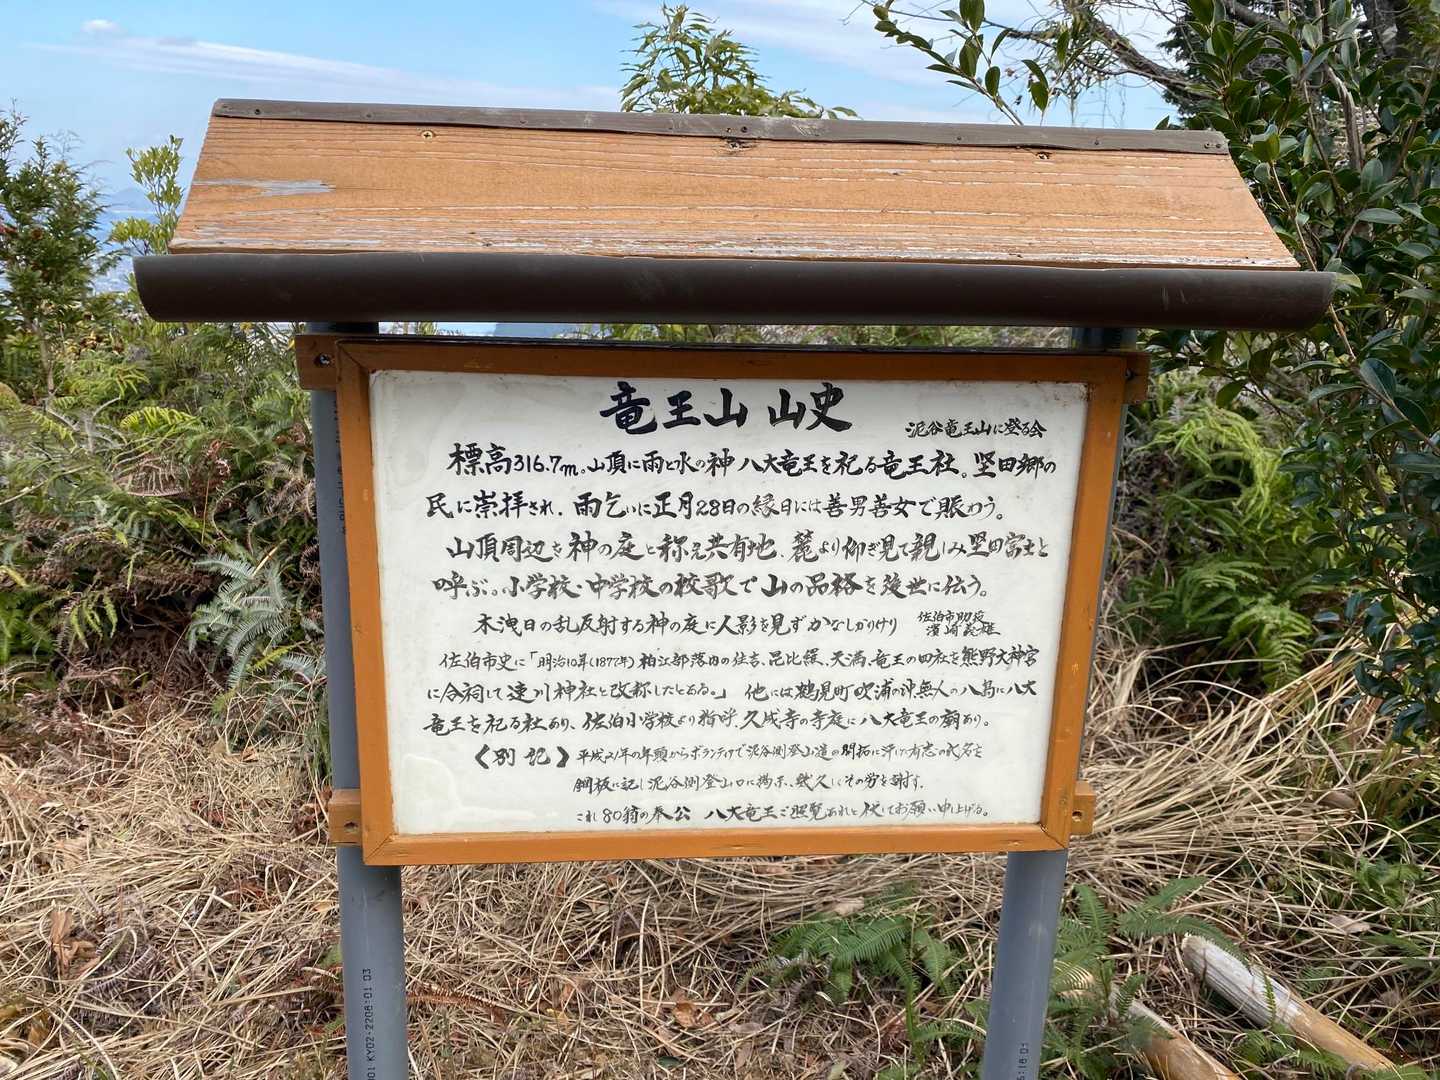 竜王山 山史
泥谷竜王山に登る会
標高316.7m。山頂に雨と水の神 八大竜王を祀る竜王社。堅田郷の
民に崇拝され、雨乞いに正月28日の縁日には善男善女で賑わう。
山頂周辺を神の庭と称え共有地、麓より仰ぎ見て親しみ堅田富士と
呼ぶ。小学校・中学校の校歌で山の品格を後世に伝う。
木洩日の乱反射する神の庭に人影を見ずかなしかりけり
佐伯市助役
濱﨑義雄
佐伯市史に「明治10年(1877年) 柏江部落内の住吉、昆比羅、天満、竜王の四社を熊野大神宮
に合祠して速川神社と改称したとある。」 他には鶴見町吹浦の沖無人の八島に八大
竜王を祀る社あり、佐伯小学校より指呼、久成寺の寺庭に八大竜王の廟あり。
〈別記〉 平成21年の年頭からボランティアで泥谷側登山道の開拓に汗した有志の氏名を
銅板に記し泥谷側登山口に掲示、悠久にその労を謝す。
これ80翁の奉公 八大竜王ご照覧あれと伏してお願い申上げる。
KY02-2206:01 03